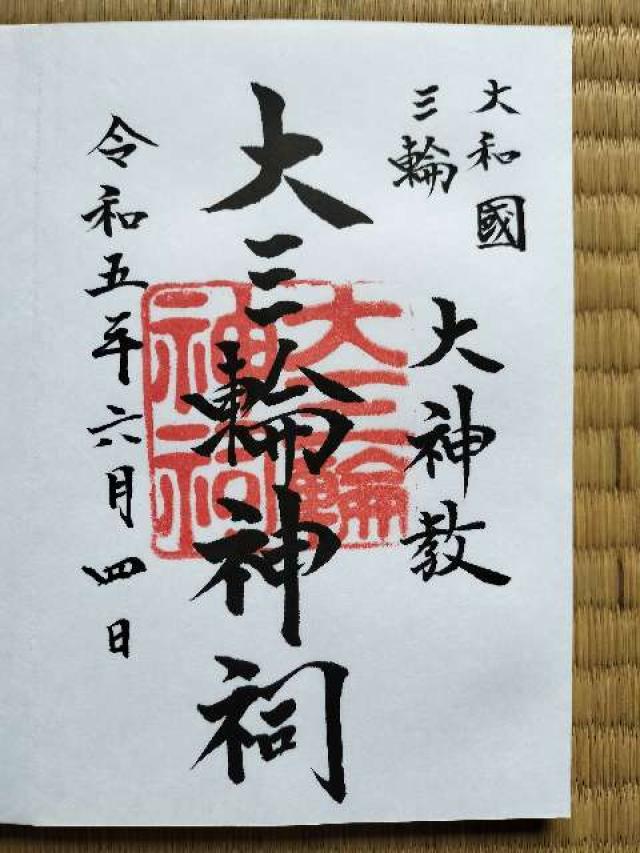 大和國
三輪
大神教
大三輪神祠
大三輪
神祠
令和五年六月四日